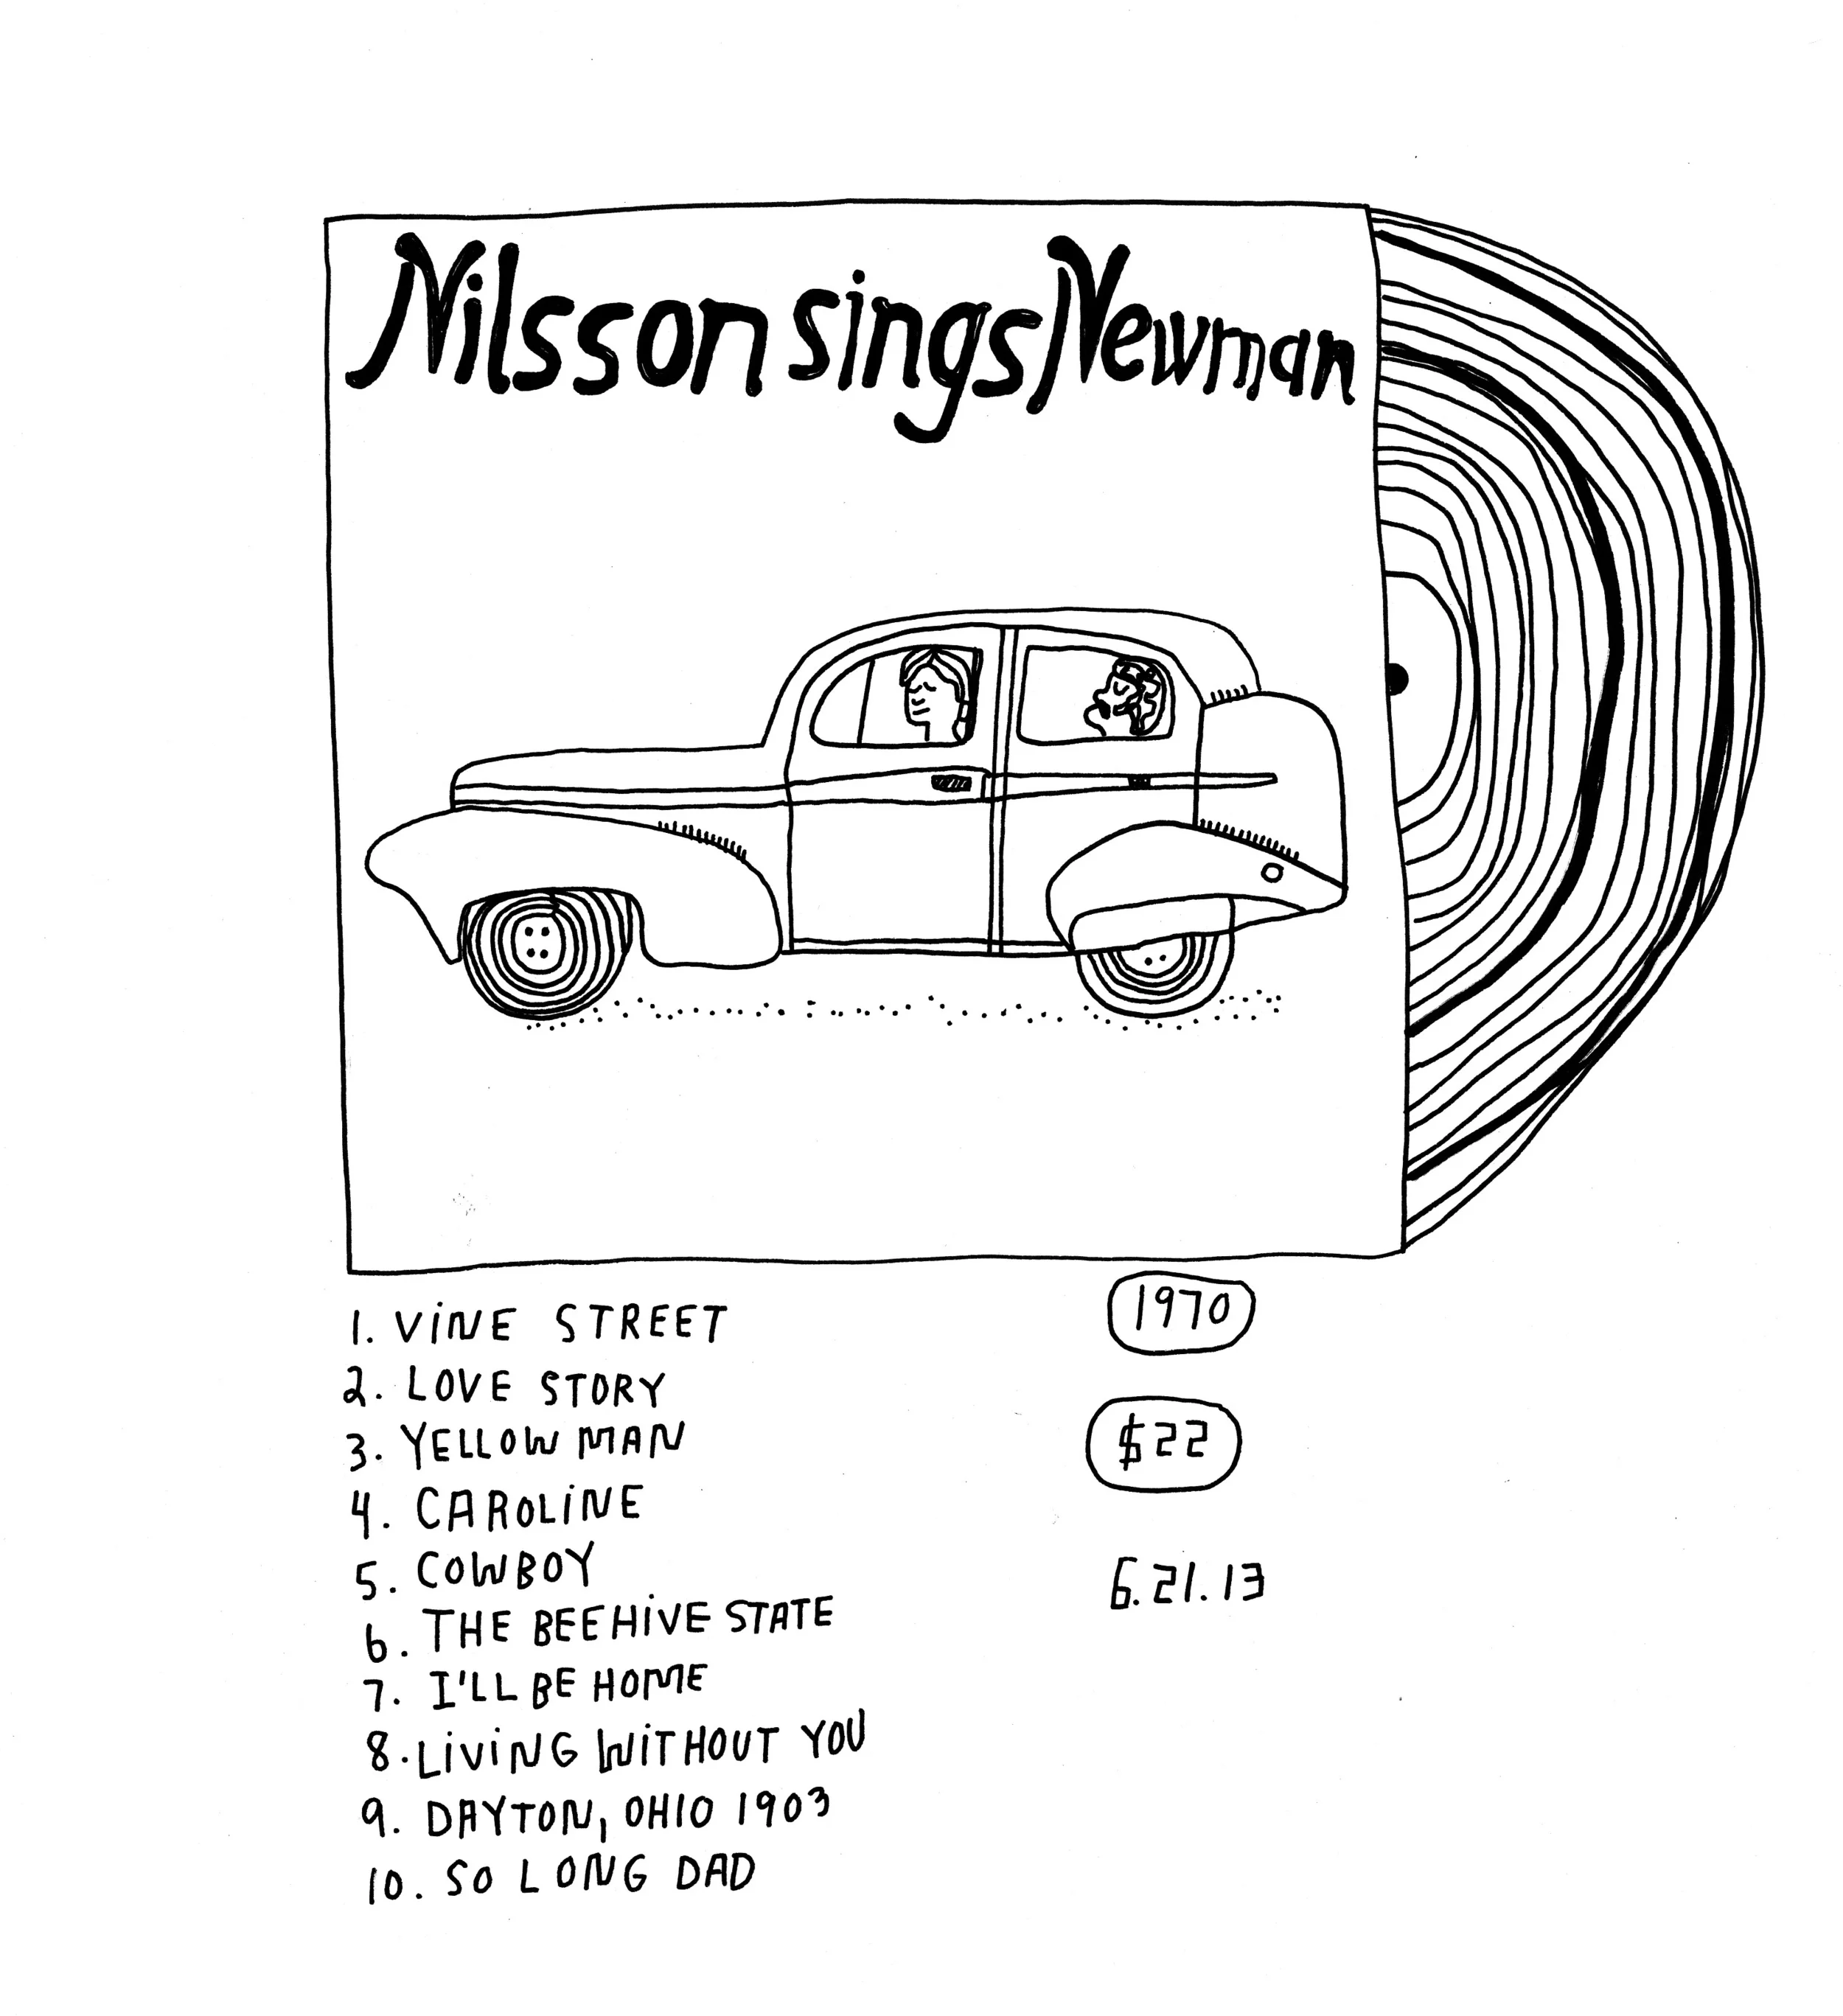 Nilsson sings Newman
1. ViNE STREET
2. LOVE STORY
3. YELLOW MAN
4. CAROLiNE
5. COWBOY
6. THE BEEHiVE STATE
7. I'LL BE HOME
8. LiViNG WiTHOUT YOU
9. DAYTON, OHIO 1903
10. SO LONG DAD
1970
$22
6.21.13